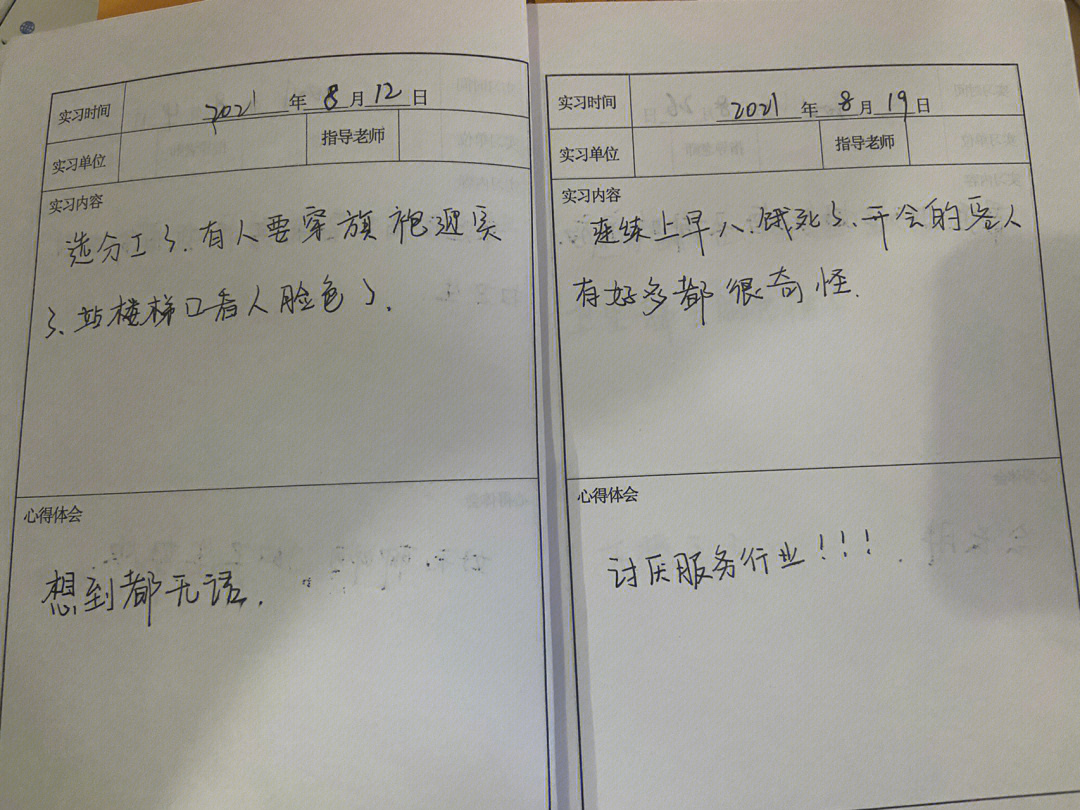 实习时间 2021 年 8 月 12 日
实习单位 指导老师
实习内容
选分工了.有人要穿旗袍迎宾
了、站楼梯口看人脸色了.
心得体会
想到都无语.
实习时间 2021 年 8 月 19 日
实习单位 指导老师
实习内容
连续上早八.饿死了、开会的客人
有好多都很奇怪.
心得体会
讨厌服务行业!!!